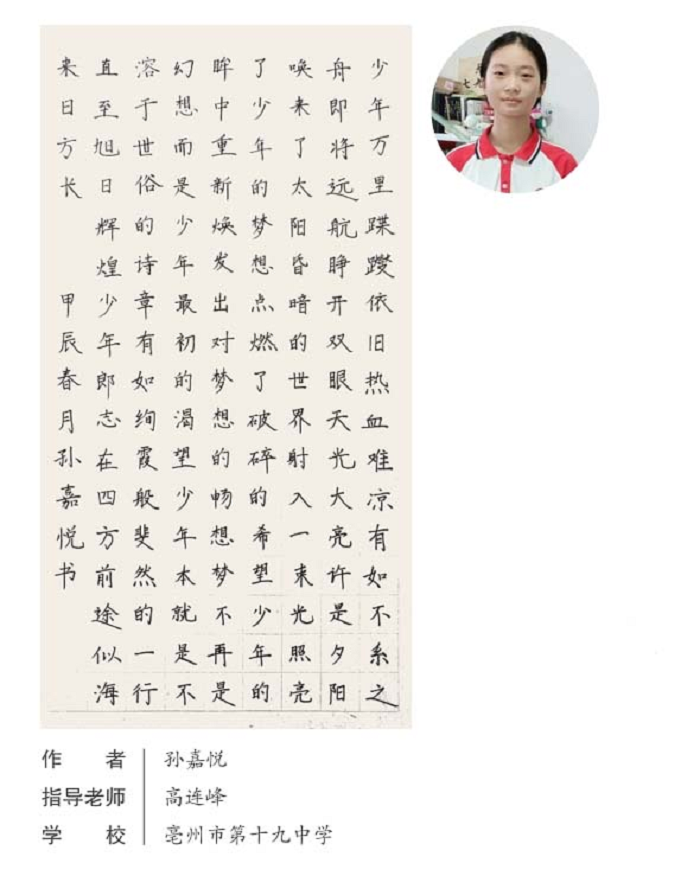 少年万里蹀躞依旧热血难凉有如不系之
舟即将远航睁开双眼天光大亮许是夕阳
唤来了太阳昏暗的世界射入一束光照亮
了少年的梦想点燃了破碎的希望少年的
眸中重新焕发出对梦想的畅想梦不再是
幻想而是少年最初的渴望少年本就是不
溶于世俗的诗章有如绚霞般斐然的一行
直至旭日辉煌少年郎志在四方前途似海
来日方长 甲辰春月孙嘉悦书
作 者 孙嘉悦
指导老师 高连峰
学 校 亳州市第十九中学